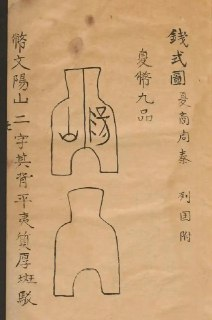 錢式圖 夏商周秦 列国附
夏幣九品
陽山
幣文陽山二字其背平夷質厚斑駁